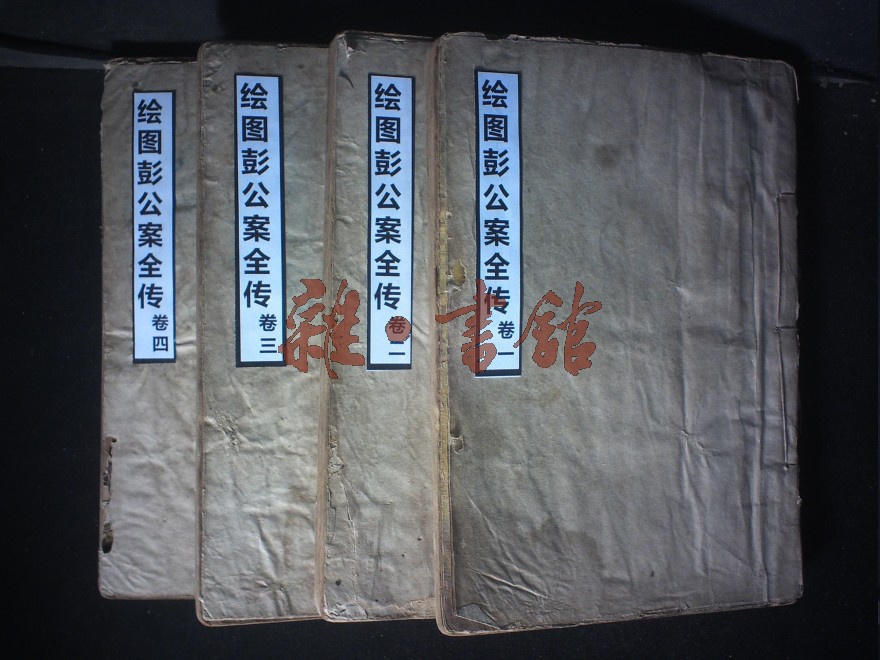 绘图彭公案全传 卷一
绘图彭公案全传 卷二
绘图彭公案全传 卷三
绘图彭公案全传 卷四
雜·書舘